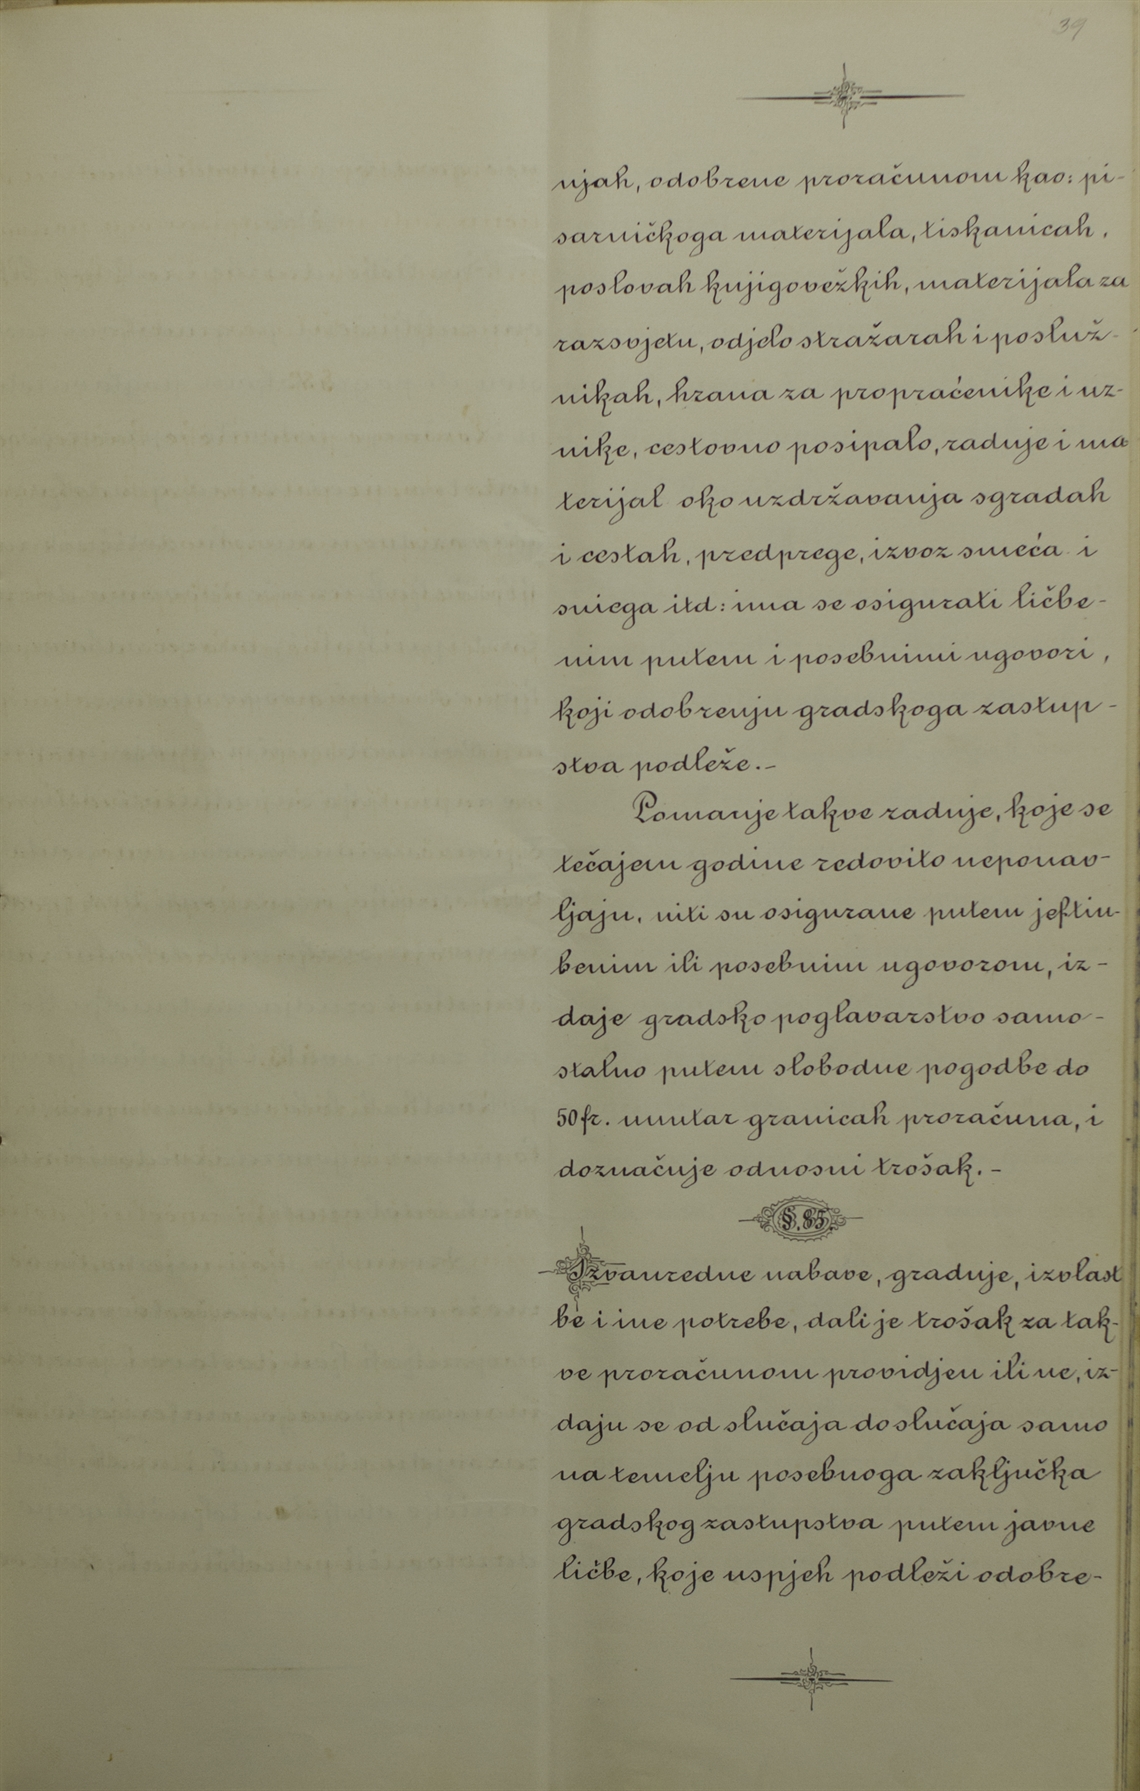 39
njah, odobrene proračunom kao: pi-
sarničkoga materijala, tiskanicah,
poslovah knjigovežkih, materijala za
razsvjetu, odjelo stražarah i posluž-
nikah, hrana za propraćenike i uz-
nike, cestovno posipalo, radnje i ma
terijal oko uzdržavanja sgradah
i cestah, predprege, izvoz smeća i
sniega itd: ima se osigurati ličbe-
nim putem i posebnimi ugovori,
koji odobrenju gradskoga zastup-
stva podleže.-
Pomanje takve radnje, koje se
tečajem godine redovito neponav-
ljaju, niti su osigurane putem jeftin-
benim ili posebnim ugovorom, iz-
daje gradsko poglavarstvo samo-
stalno putem slobodne pogodbe do
50 fr. unutar granicah proračuna, i
doznačuje odnosni trošak.-
§. 85.
Izvanredne nabave, gradnje, izvlast
be i ine potrebe, dali je trošak za tak-
ve proračunom providjen ili ne, iz-
daju se od slučaja do slučaja samo
na temelju posebnoga zaključka
gradskog zastupstva putem javne
ličbe, koje uspjeh podleži odobre-